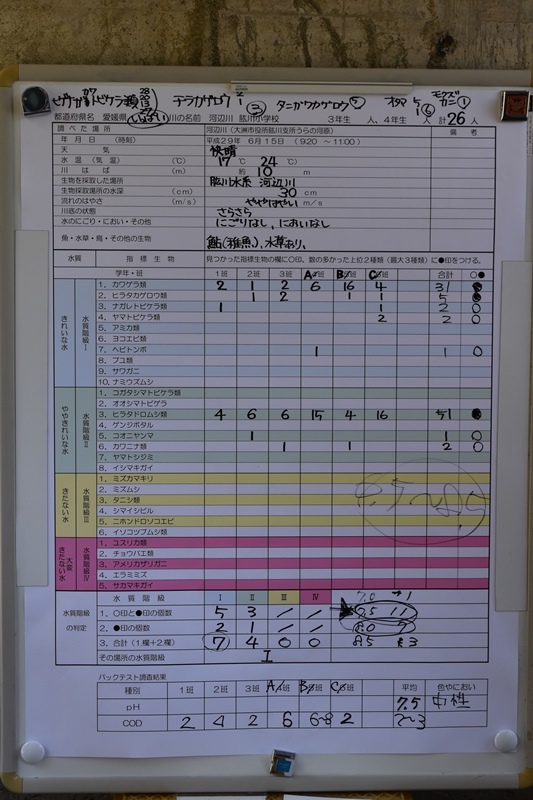 ヒゲナガカワトビケラ類 テラカゲロウ ② タニガワカゲロウ オタマ ⑥ モクズガニ ①
都道府県名 愛媛県 川の名前 河辺川 肱川小学校 3年生 人、4年生 人 計26人
調べた場所 河辺川(大洲市役所肱川支所うらの河原) 備考
年月日 (時刻) 平成29年 6月15日 (920 ~ 11:00)
天気 快晴
水温(気温) (℃) 17℃ 24℃
川はば (m) 約10m
生物を採取した場所 肱川水系 河辺川
生物採取場所の水深 (cm) 30cm
流れのはやさ (m/s) ややはやい m/s
川底の状態 さらさら
水のにごり・におい・その他 にごりなし、においなし
魚・水草・鳥・その他の生物 鮎(稚魚)、水草あり、
水質 指標生物 見つかった指標生物の欄に○印、数の多かった上位2種類(最大3種類)に●印をつける。
学年・班 1班 2班 3班 A班 B班 C班 合計 ○●
きれいな水 水質階級Ⅰ
1. カワゲラ類 2 1 2 6 16 4 31 ●
2. ヒラタカゲロウ類 1 2 1 1 5 ●
3. ナガレトビケラ類 1 1 2 ○
4. ヤマトビケラ類 2 2 ○
5. アミカ類
6. ヨコエビ類
7. ヘビトンボ 1 1 ○
8. ブユ類
9. サワガニ
10. ナミウズムシ
ややきれいな水 水質階級Ⅱ
1. コガタシマトビケラ類
2. オオシマトビケラ
3. ヒラタドロムシ類 4 6 6 15 4 16 51 ●
4. ゲンジボタル
5. コオニヤンマ 1 1 ○
6. カワニナ類 1 1 2 ○
7. ヤマトシジミ
8. イシマキガイ
きたない水 水質階級Ⅲ
1. ミズカマキリ
2. ミズムシ
3. タニシ類
4. シマイシビル
5. ニホンドロソコエビ
6. イソコツブムシ類
大変きたない水 水質階級Ⅳ
1. ユスリカ類
2. チョウバエ類
3. アメリカザリガニ
4. エラミミズ
5. サカマキガイ
水質階級 Ⅰ Ⅱ Ⅲ Ⅳ 7.0
水質階級の判定
1. ○印と●印の個数 5 3 / /
2. ●印の個数 2 1 / / 8.0
3. 合計(1.欄+2.欄) 7 4 0 0 8.5
その場所の水質階級 Ⅰ
パックテスト調査結果
種別 1班 2班 3班 A班 B班 C班 平均 色やにおい
pH 7.5 中性
COD 2 4 2 6 6~8 2 2~3